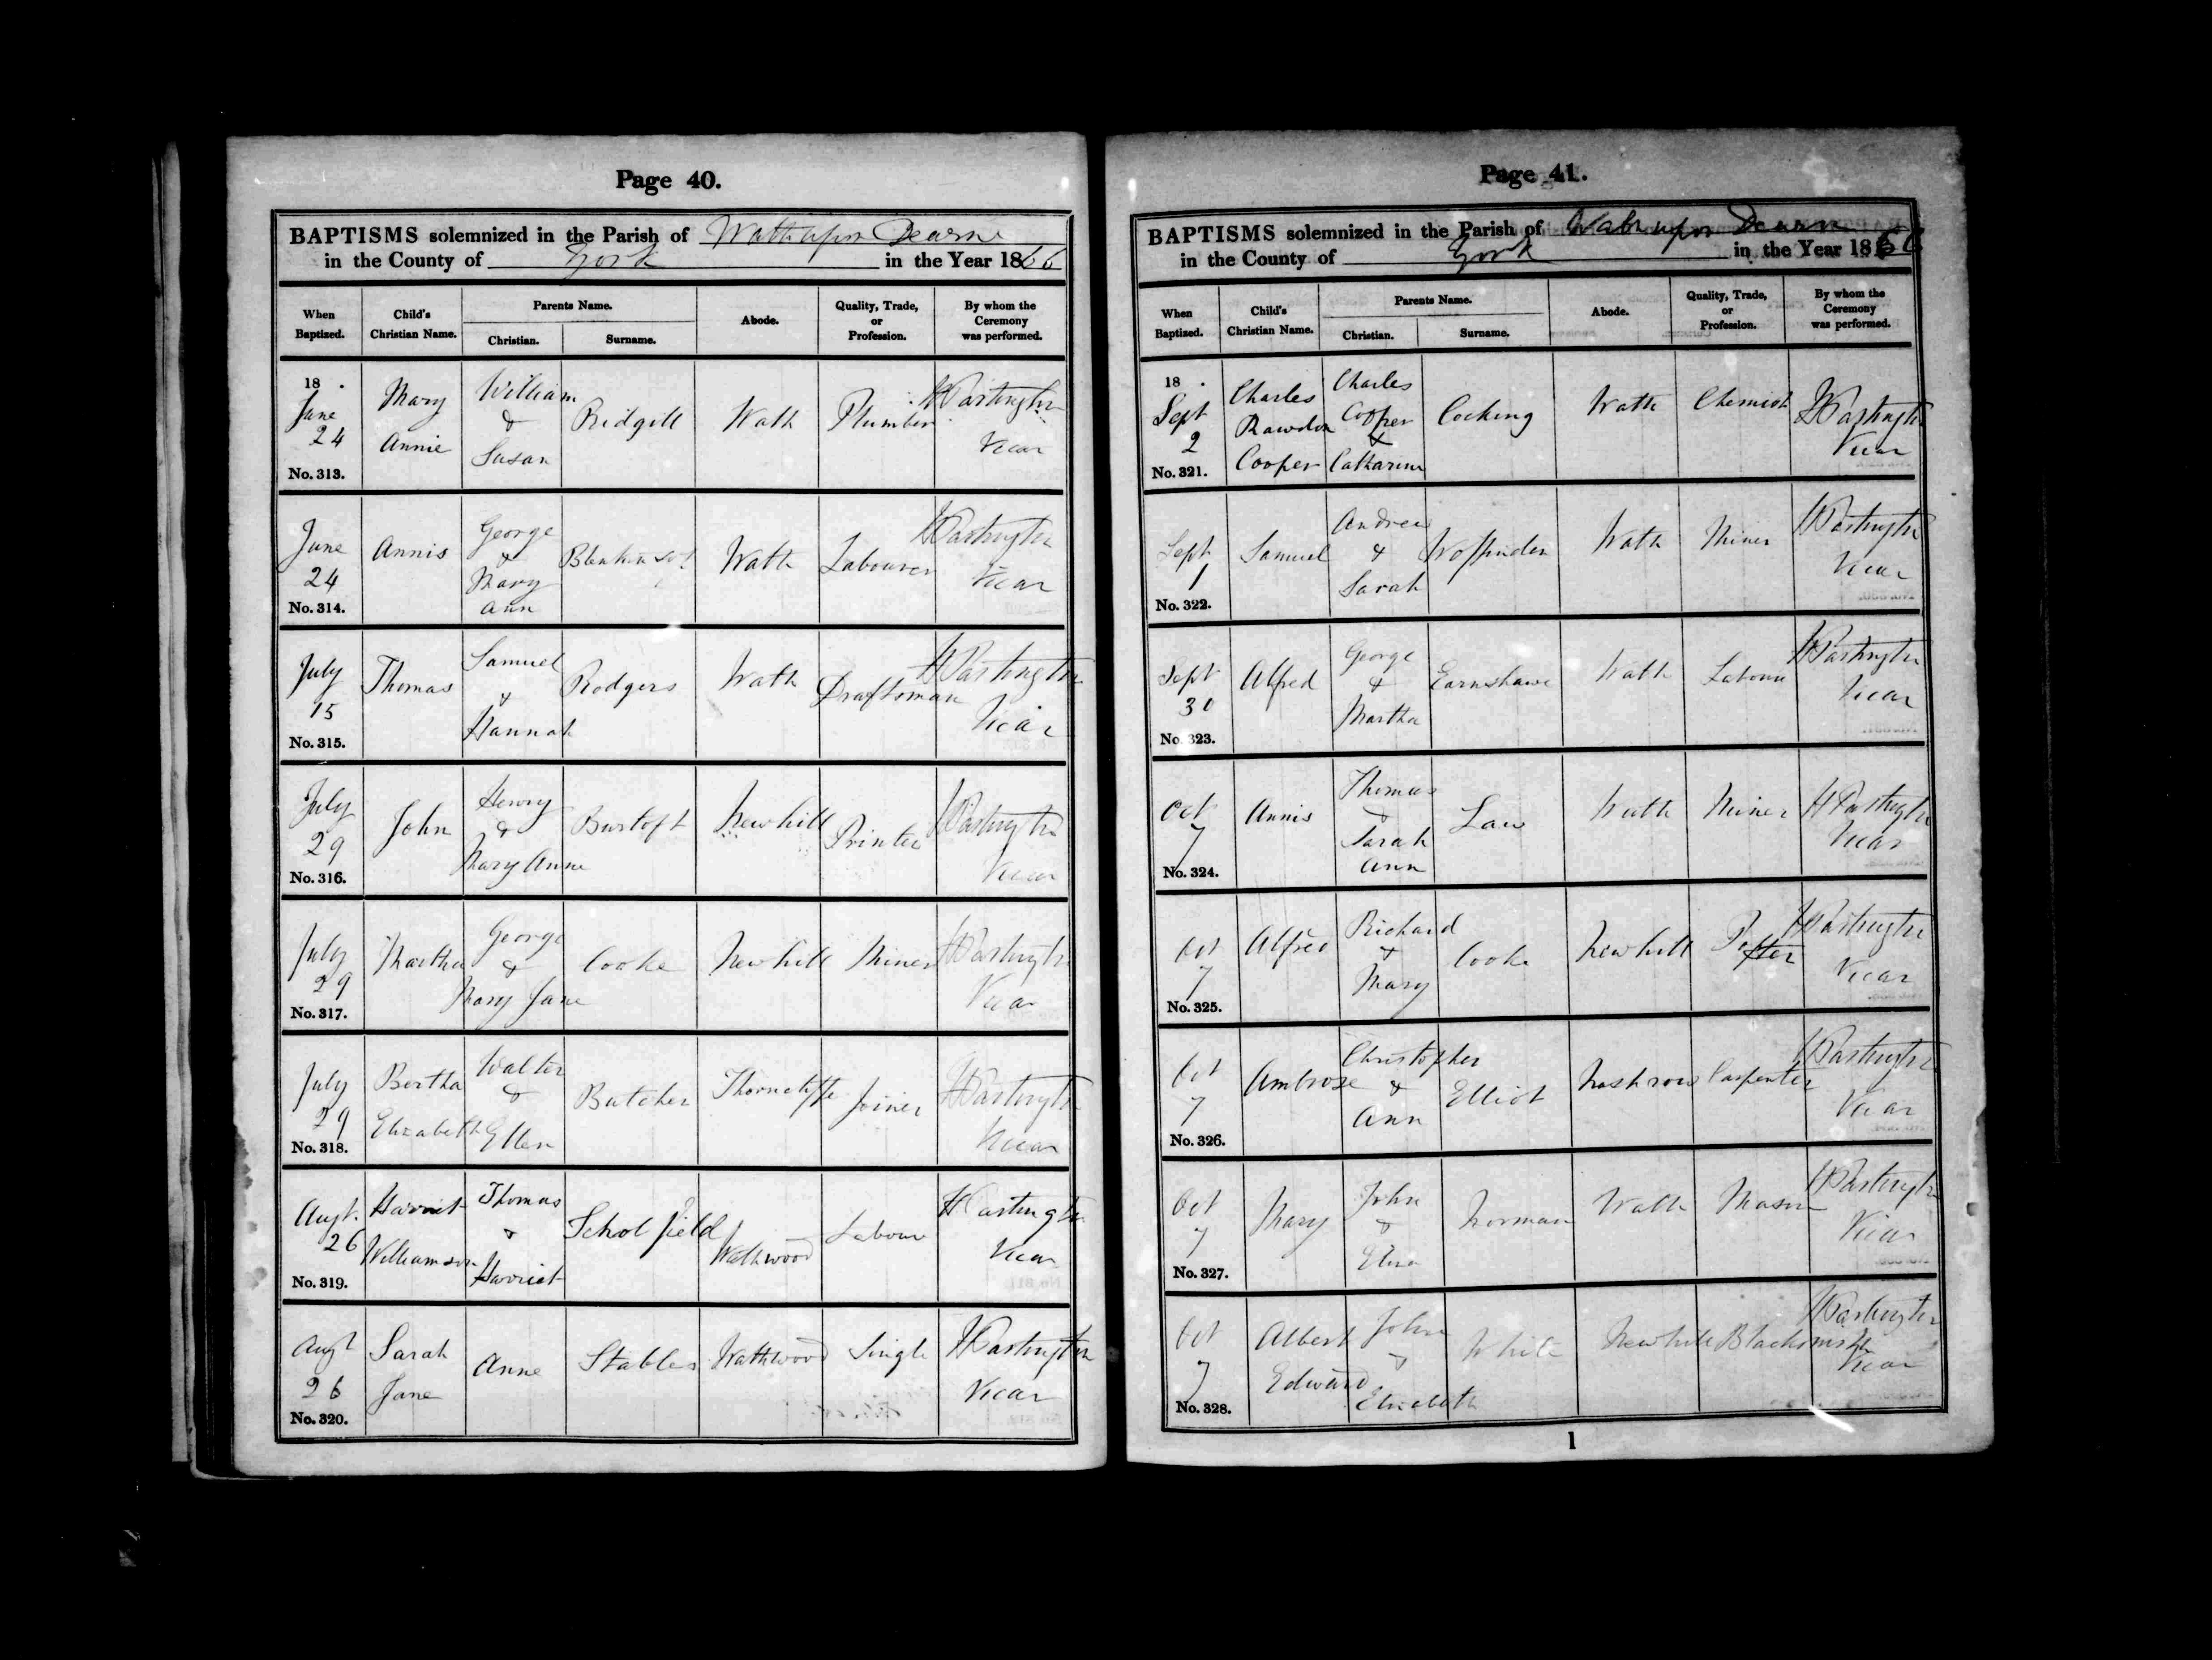 Page 40.
BAPTISMS solemnized in the Parish of Wath upon Dearne
in the County of York in the Year 1866
When Baptized. Child's Christian Name. Parents Name. Christian. Surname. Abode. Quality, Trade, or Profession. By whom the Ceremony was performed.
18 . June 24 Mary Annie William & Susan Ridgill Wath Plumber H Partington Vicar
No. 313.
June 24 Annis George & Mary Ann Wath Labourer H Partington Vicar
No. 314.
July 15 Thomas Samuel & Hannah Rodgers Wath Draftsman H Partington Vicar
No. 315.
July 29 John Henry & Mary Anne Burtoft Newhill Printer H Partington Vicar
No. 316.
July 29 Martha George & Mary Jane Cooke Newhill Miner H Partington Vicar
No. 317.
July 29 Bertha Elizabeth Walter & Ellen Butcher Thorncliffe Joiner H Partington Vicar
No. 318.
Augt. 26 Harriet Williamson Thomas & Harriet Scholfield Wathwood Labour H Partington Vicar
No. 319.
Augt 26 Sarah Jane Anne Stables Wathwood Single H Partington Vicar
No. 320.
Page 41.
BAPTISMS solemnized in the Parish of Wath upon Dearn
in the County of York in the Year 1866
When Baptized. Child's Christian Name. Parents Name. Christian. Surname. Abode. Quality, Trade, or Profession. By whom the Ceremony was performed.
18 . Sept 2 Charles Rawdon Cooper Charles Cooper & Catharine Cocking Wath Chemist H Partington Vicar
No. 321.
Sept 1 Samuel Andrew & Sarah Woffinden Wath Miner H Partington Vicar
No. 322.
Sept 30 Alfred George & Martha Earnshaw Wath Labour H Partington Vicar
No. 323.
Oct 7 Annis Thomas & Sarah Ann Law Wath Miner H Partington Vicar
No. 324.
Oct 7 Alfred Richard & Mary Cooke Newhill Potter H Partington Vicar
No. 325.
Oct 7 Ambrose Christopher & Ann Elliot Carpenter H Partington Vicar
No. 326.
Oct 7 Mary John & Eliza Norman Wath Mason H Partington Vicar
No. 327.
Oct 7 Albert Edward John & Elizabeth White Newhill Blacksmith H Partington Vicar
No. 328.
1